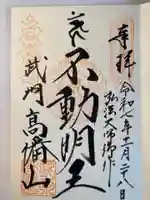 奉拝
令和七年十二月二十八日
弘法大師御作
不動明王
武州 高幡山